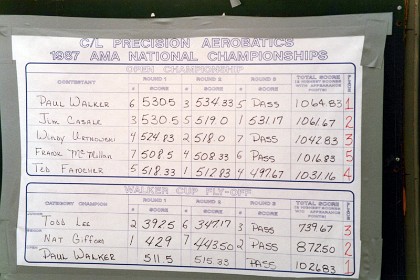 C/L PRECISION AEROBATICS
1987 AMA NATIONAL CHAMPIONSHIPS
OPEN CHAMPIONSHIP
CONTESTANT ROUND 1 ROUND 2 ROUND 3 TOTAL SCORE PLACE
# SCORE # SCORE # SCORE (2 HIGHEST SCORES WITH APPEARANCE POINTS)
PAUL WALKER 6 530.5 3 534.33 5 PASS 1064.83 1
JIM CASALE 3 530.5 5 519.0 1 531.17 1061.67 2
WINDY URTNOWSKI 4 524.83 2 518.0 7 PASS 1042.83 3
FRANK McMILLAN 7 508.5 4 508.33 6 PASS 1016.83 5
TED FANCHER 5 518.33 1 512.83 4 497.67 1031.16 4
WALKER CUP FLY-OFF
CATEGORY CHAMPION ROUND 1 ROUND 2 ROUND 3 TOTAL SCORE PLACE
# SCORE # SCORE # SCORE (2 HIGHEST SCORES WITH APPEARANCE POINTS)
TODD LEE 2 392.5 6 347.17 3 PASS 739.67 3
NAT GIFFORD 1 429 7 443.50 2 PASS 872.50 2
PAUL WALKER 511.5 515.33 PASS 1026.83 1